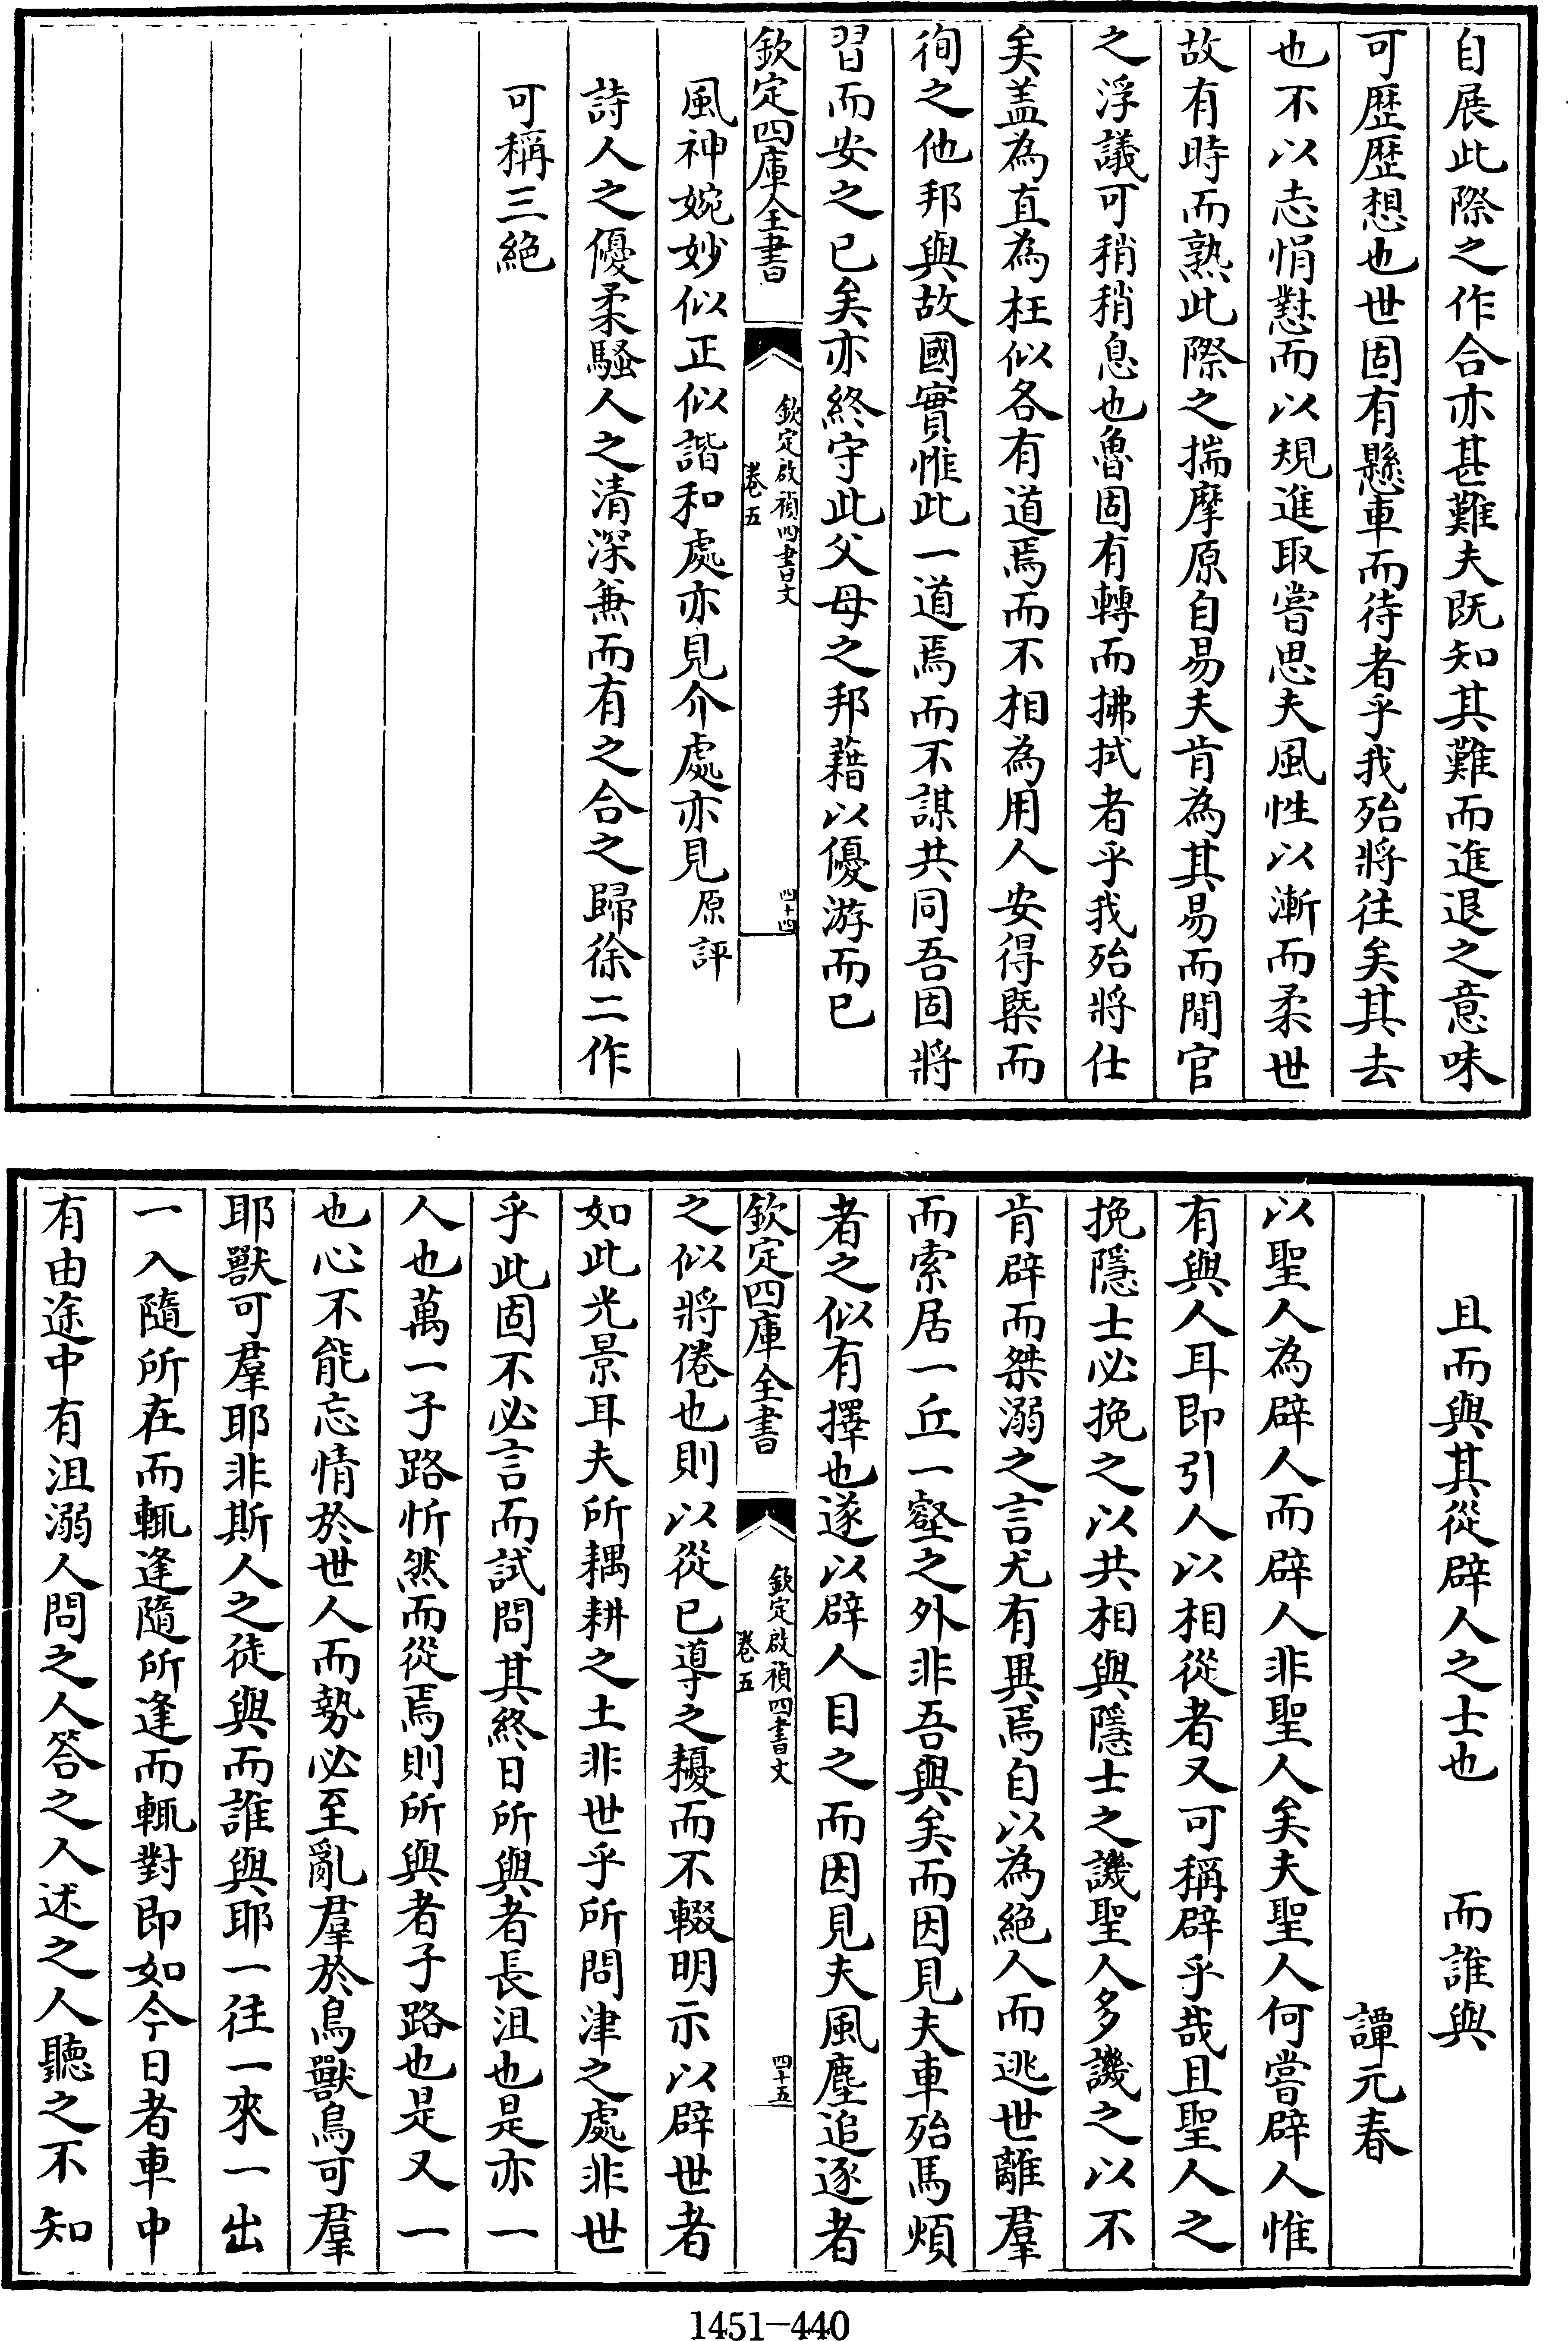 自展此際之作合亦甚難夫既知其難而進退之意味
可歴歴想也世固有懸車而待者乎我殆將往矣其去
也不以志悁懟而以規進取嘗思夫風性以漸而柔世
故有時而熟此際之揣摩原自易夫肯為其易而閒官
之浮議可稍稍息也魯固有轉而拂拭者乎我殆將仕
矣盖為直為枉似各有道焉而不相為用人安得槩而
徇之他邦與故國實惟此一道焉而不謀共同吾固將
習而安之已矣亦終守此父母之邦藉以優游而已
欽定四庫全書
欽定啟禎四書文
卷五
四十四
風神婉妙似正似諧和處亦見介處亦見原評
詩人之優柔騷人之清深兼而有之合之歸徐二作
可稱三絶
且而與其從辟人之士也 而誰與
譚元春
以聖人為辟人而辟人非聖人矣夫聖人何嘗辟人惟
有與人耳即引人以相從者又可稱辟乎哉且聖人之
挽隱士必挽之以共相與隱士之譏聖人多譏之以不
肯辟而桀溺之言尤有異焉自以為絶人而逃世離羣
而索居一丘一壑之外非吾與矣而因見夫車殆馬煩
者之似有擇也遂以辟人目之而因見夫風塵追逐者
欽定四庫全書
欽定啟禎四書文
卷五
四十五
之似將倦也則以從已導之耰而不輟明示以辟世者
如此光景耳夫所耦耕之土非世乎所問津之處非世
乎此固不必言而試問其終日所與者長沮也是亦一
人也萬一子路忻然而從焉則所與者子路也是又一
也心不能忘情於世人而勢必至亂羣於鳥獸鳥可羣
耶獸可羣耶非斯人之徒與而誰與耶一往一來一出
一入隨所在而輒逢隨所逢而輒對即如今日者車中
有由途中有沮溺人問之人答之人述之人聽之不知
1451-440